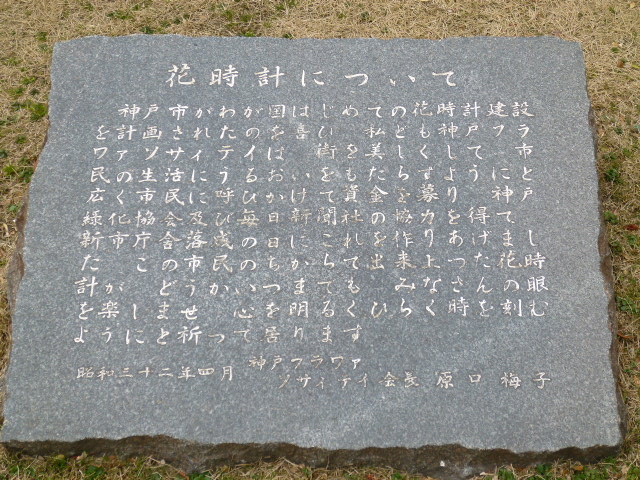 花時計について
神戸市がわが国はじめての花時計建設
を計画されたのを喜び 私ども神戸フラ
ワァソサイテイは 街を美しくして 市
民の生活にうるおいをもたらすようにと
広く市民に呼びかけて資金を募り 神戸
緑化協会及び毎日新聞社の協力を得て
新市庁舎落成の日にこれを作りあげまし
た この市民のちからで出来上つた花時
計が どうか いつまでもみなさんの眼
を楽しませ 心を明るくひらく時を刻む
ようにと祈つて居ります
昭和三十二年四月 神戸フラワァソサイテイ 会長 原口 梅子